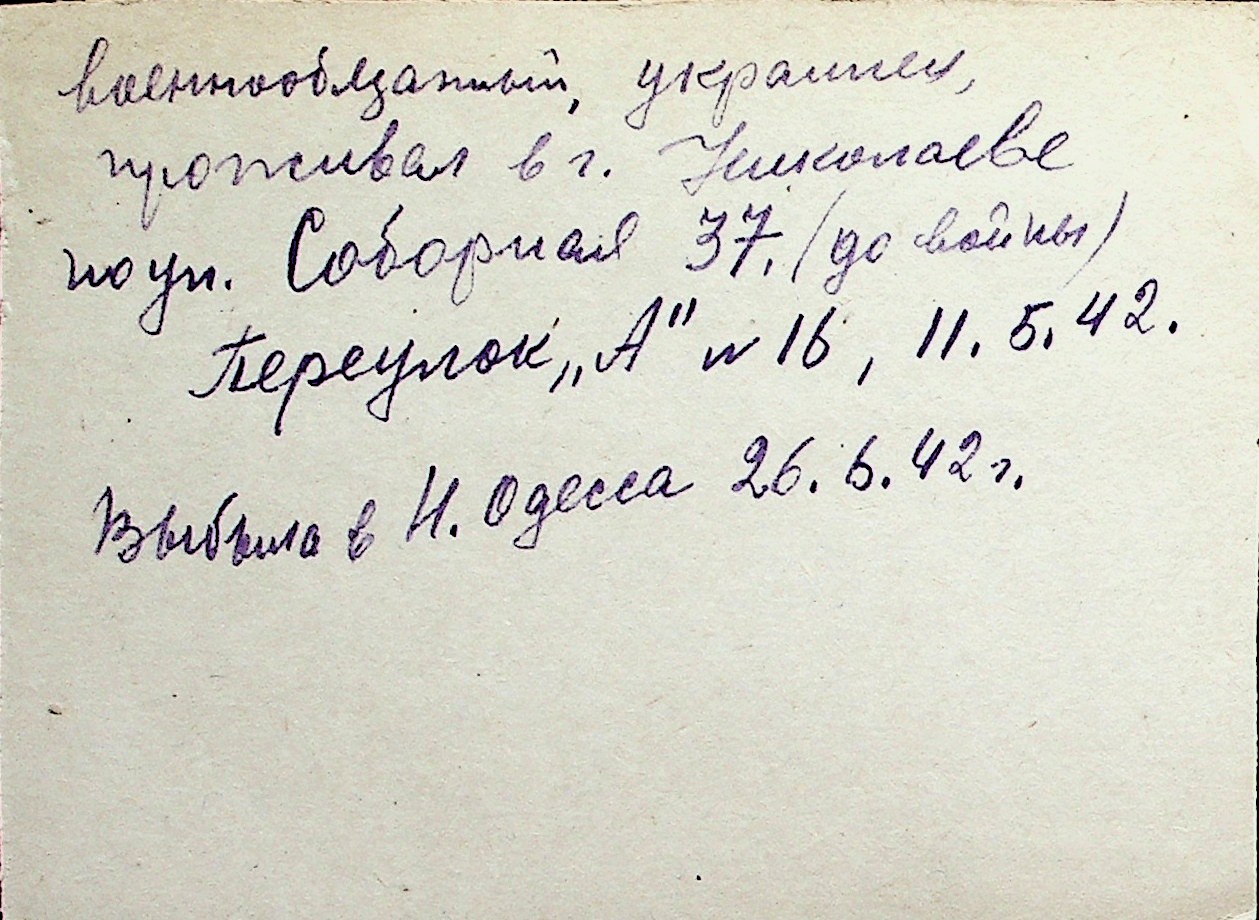 военнообязанный, украинец,
проживал в г. Николаеве
по ул. Соборная 37. (до войны)
Переулок „А" № 16, 11.5.42.
Выбыла в Н. Одесса 26.6.42 г.